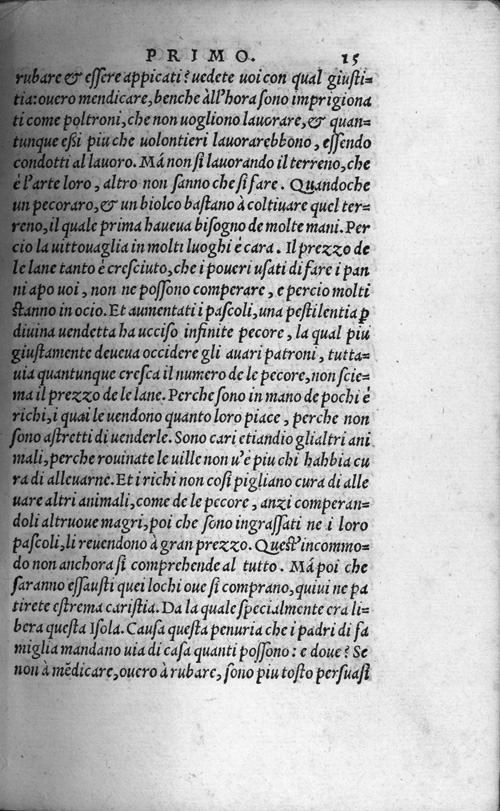 PRIMO. 15
rubare & eſſere appicati? uedete uoi con qual giuſti=
tia: ouero mendicare, benche àll'hora ſono imprigiona
ti come poltroni, che non uogliono lauorare, & quan=
tunque eßi piu che uolontieri lauorarebbono, eſſendo
condotti al lauoro. Má non ſi lauorando il terreno, che
é l'arte loro, altro non ſanno che ſi fare. Quandoche
un pecoraro, & un biolco baſtano à coltiuare quel ter=
reno, il quale prima haueua biſogno de molte mani. Per
cio la uittouaglia in molti luoghi é cara. Il prezzo de
le lane tanto é creſciuto, che i poueri uſati di fare i pan
ni apo uoi, non ne poſſono comperare, e percio molti
ſtanno in ocio. Et aumentati i paſcoli, una peſtilentia ꝑ
diuina uendetta ha ucciſo infinite pecore, la qual piú
giuſtamente deueua occidere gli auari patroni, tutta=
uia quantunque creſca il numero de le pecore, non ſcie=
ma il prezzo de le lane. Perche ſono in mano de pochi é
richi, i quai le uendono quanto loro piace, perche non
ſono aſtretti di uenderle. Sono cari etiandio glialtri ani
mali, perche rouinate le uille non u'é piu chi habbia cu
ra di alleuarne. Et i richi non coſi pigliano cura di alle
uare altri animali, come de le pecore, anzi comperan=
doli altruoue magri, poi che ſono ingraſſati ne i loro
paſcoli, li reuendono à gran prezzo. Queſt'incommo=
do non anchora ſi comprehende al tutto. Má poi che
ſaranno eſſauſti quei lochi oue ſi comprano, quiui ne pa
tirete eſtrema cariſtia. Da la quale ſpecialmente era li=
bera queſta Iſola. Cauſa queſta penuria che i padri di fa
miglia mandano uia di caſa quanti poſſono: e doue? Se
non à mēdicare, ouero à rubare, ſono piu toſto perſuaſi